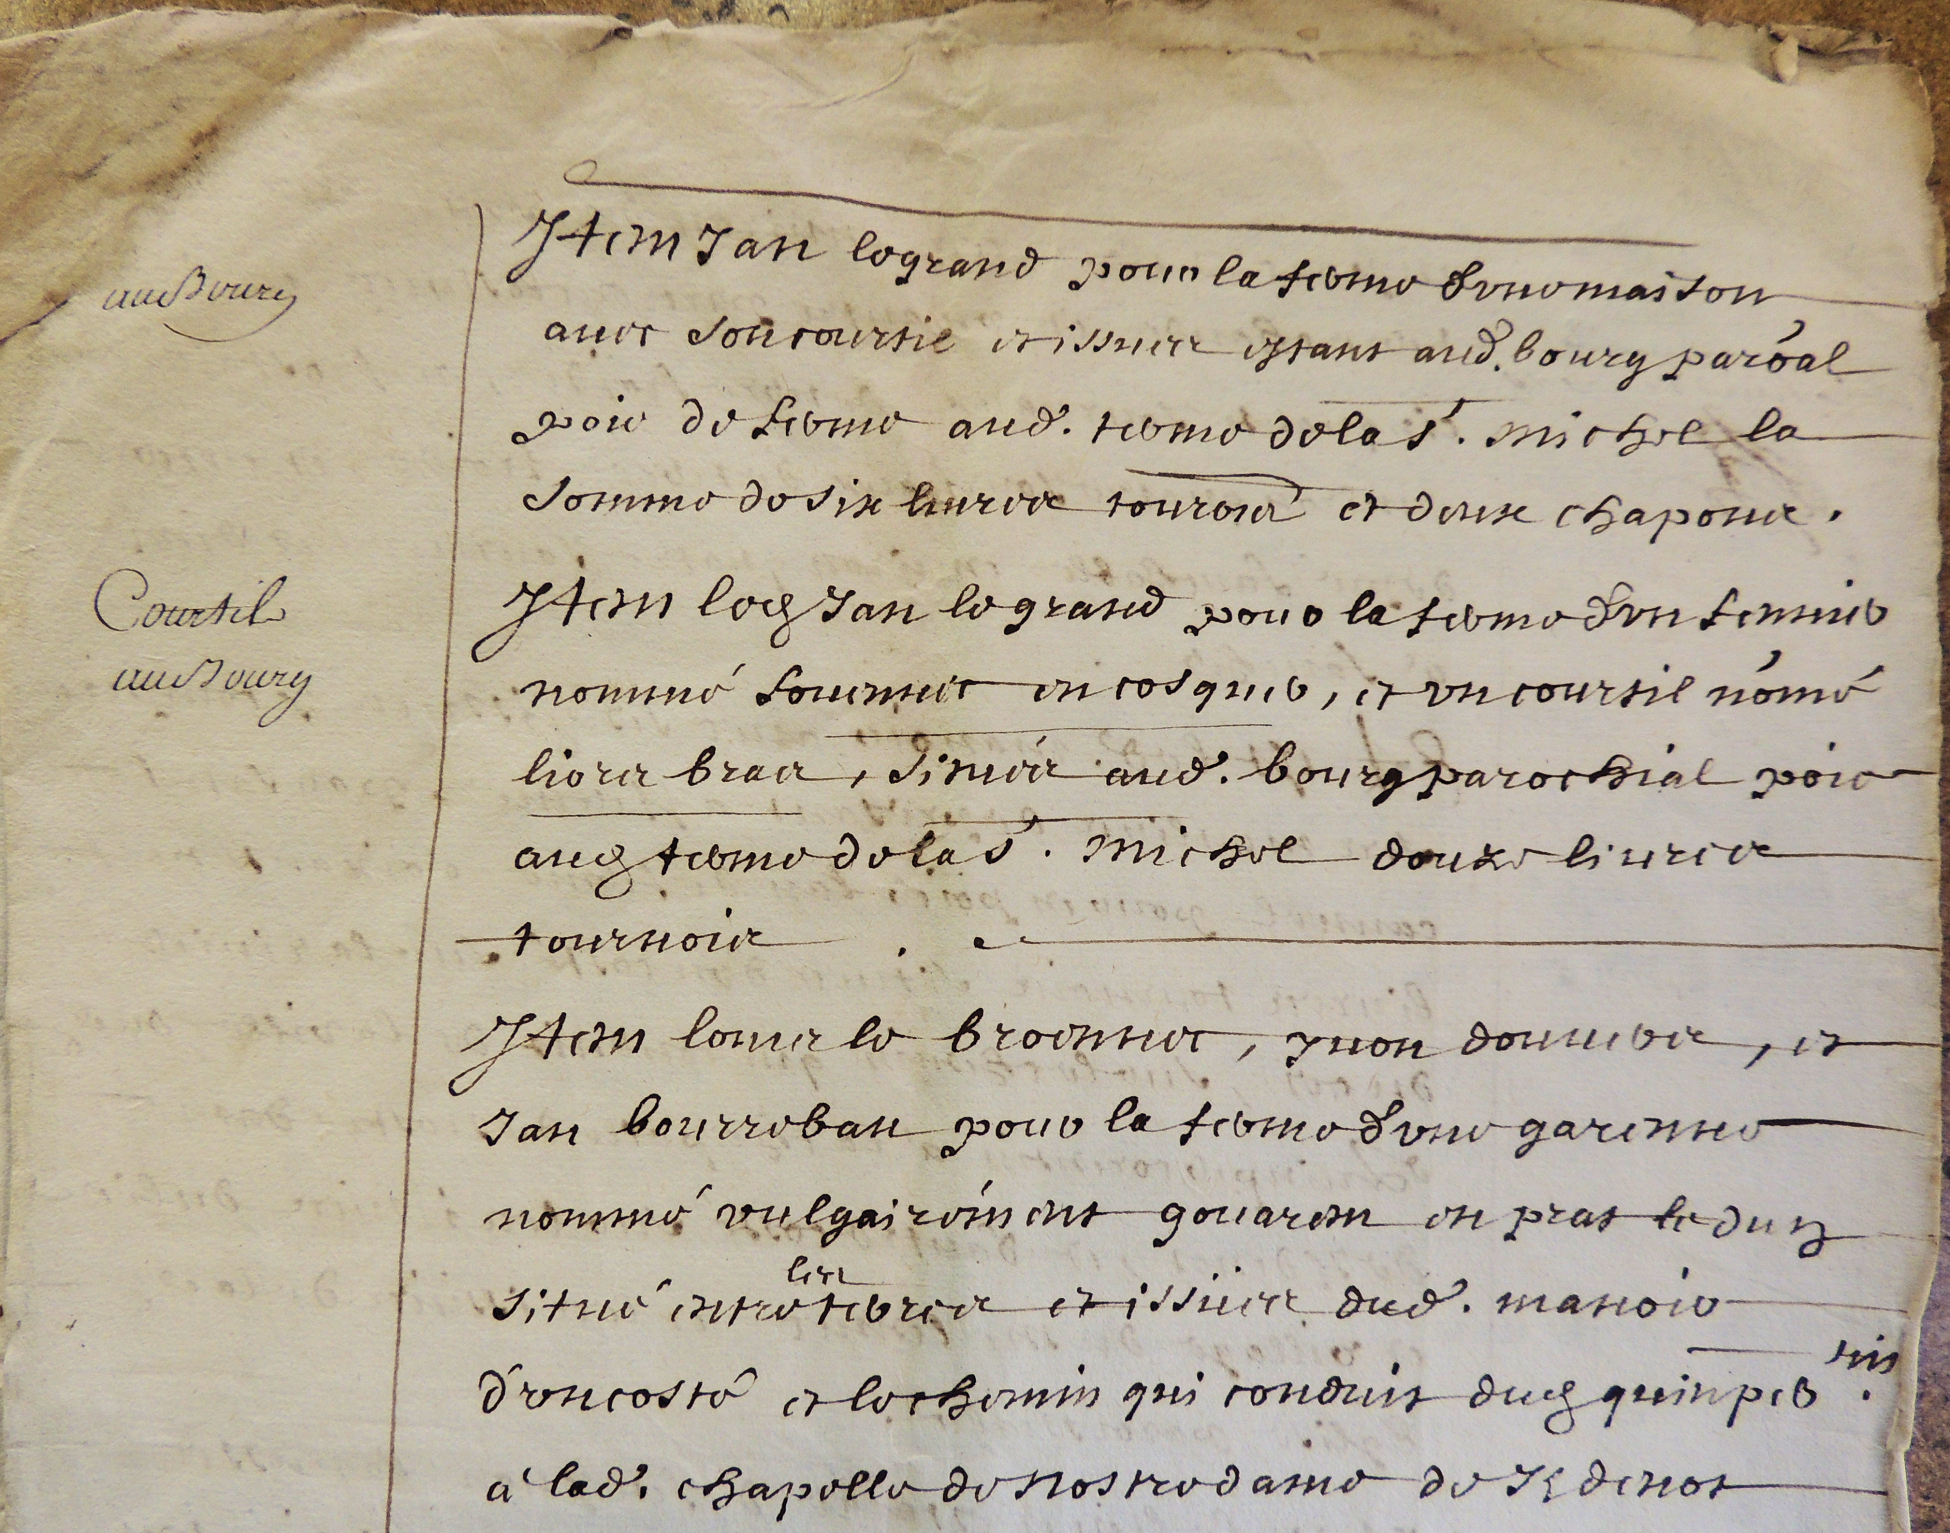 au Bourg
Item Jan le grand pour la ferme d'vne maison
auec son courtil et issues estant aud. bourg paroal
poie de ferme aud. terme de la S. Michel la
somme de six liures tournois et deux chapons.
Courtil
au Bourg
Item led Jan le grand pour la ferme d'vn
nommé en cosquer, et vn courtil nomé
liors bras, situés aud. bourg parochial poie
aud terme de la S. Michel douze liures
tournois .
Item louis le broennec, yuon et
Jan bourreban pour la ferme d'vne garenne
nommé vulgairement gouarem en prat le duz
les
situé entre terres et issües dud. manoir
d'vn costé et le chemin qui conduit dud quimper
à lad. chapelle de nostre dame de K denot